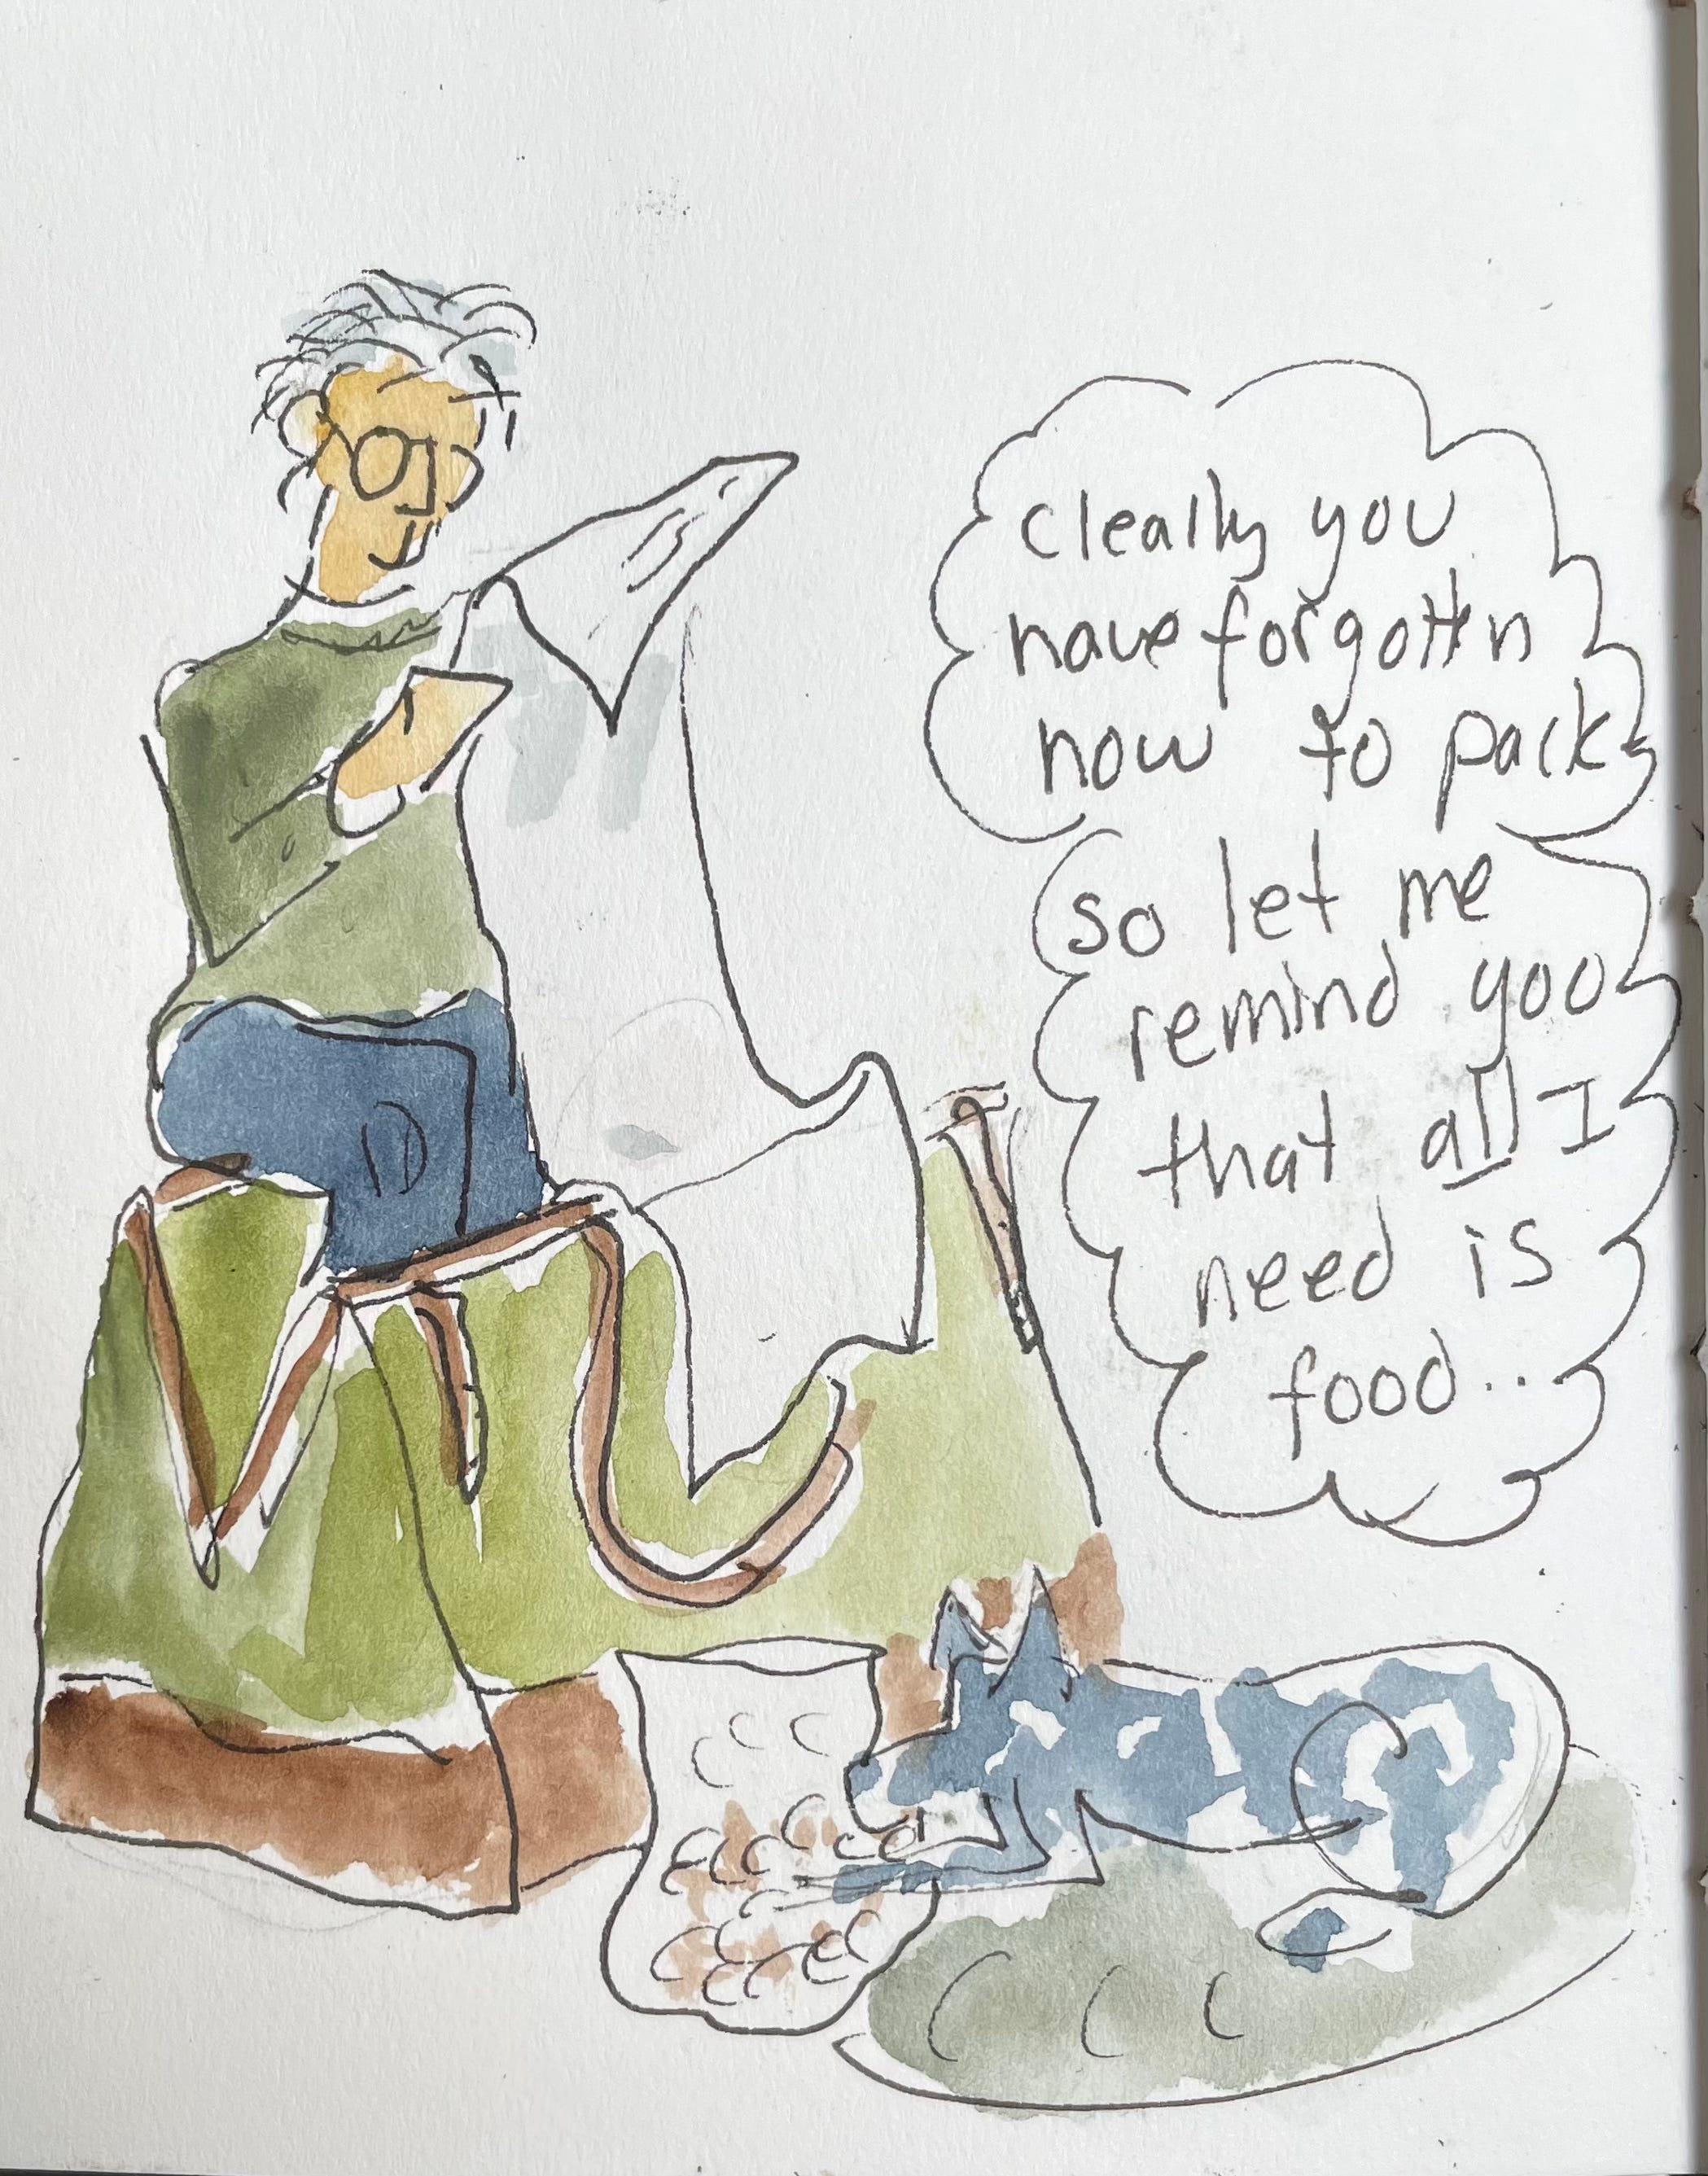 clearly you
have forgotten
how to pack
so let me
remind you
that all I
need is
food..